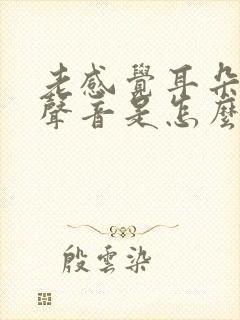 老感覺耳朵
聲音是怎麼
殷雲染